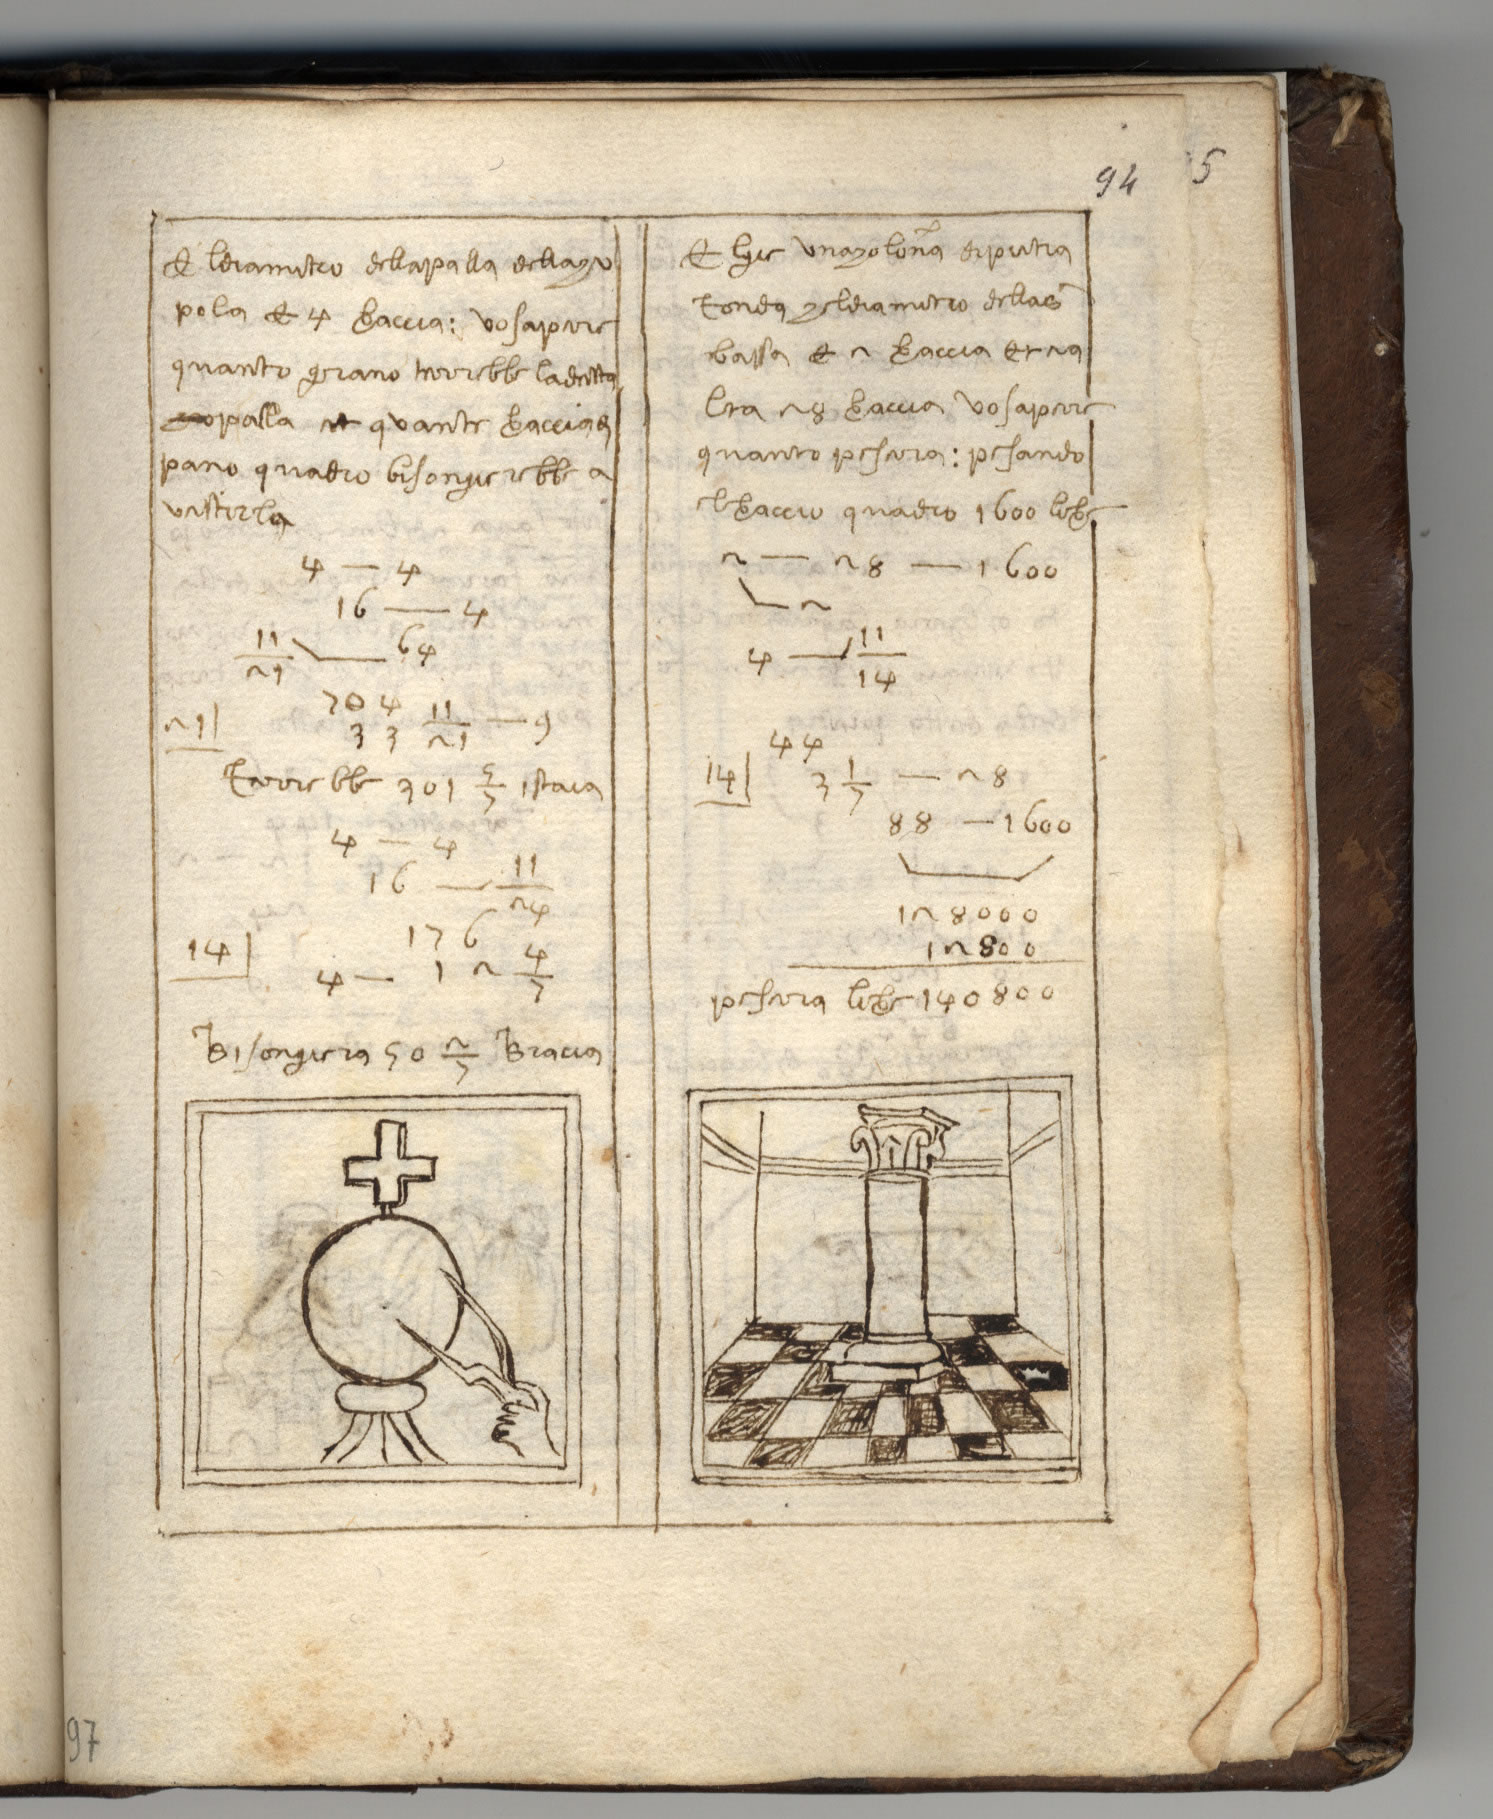 94 5
El diamitro della palla della qu
pola è 4 braccia: vo sapere
quanto grano terrebbe la detta
palla et quante braccia di
pano quadro bisongierebbe a
vestirla
4 — 4
16 — 4
11/21 64
704
21| 33 11/21 — 9
Terrebbe 301 5/7 istaia
4 — 4
16 — 11/14
176
14| 4 — 12 4/7
Bisongiera 50 2/7 Bracia
Egli è una qolona di pietra
tonda qel diamitro della s
bassa è 2 braccia et è
alta 28 braccia vo sapere
quanto pesera: pesando
el braccio quadro 1600 libre
2 — 28 — 1600
2
4 — 11/14
44
14| 3 1/7 — 28
88 — 1600
128000
12800
pesera libre 140800
97